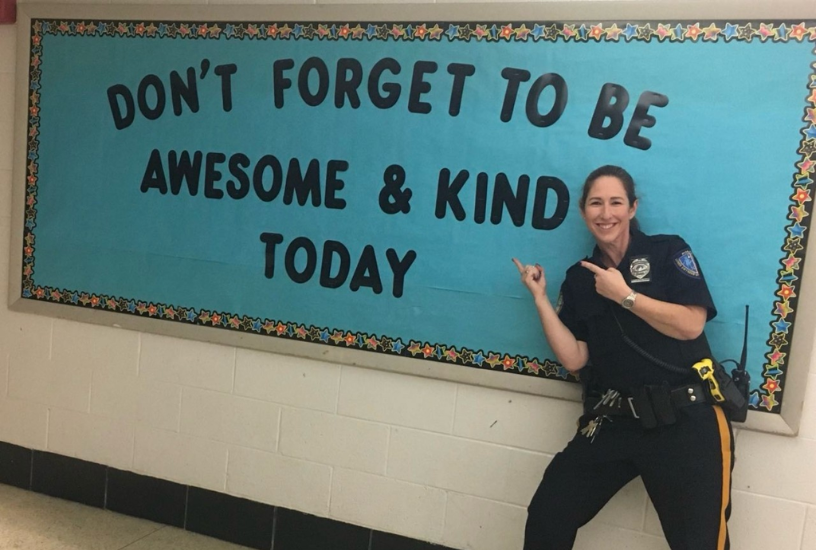 DON'T FORGET TO BE
AWESOME & KIND
TODAY